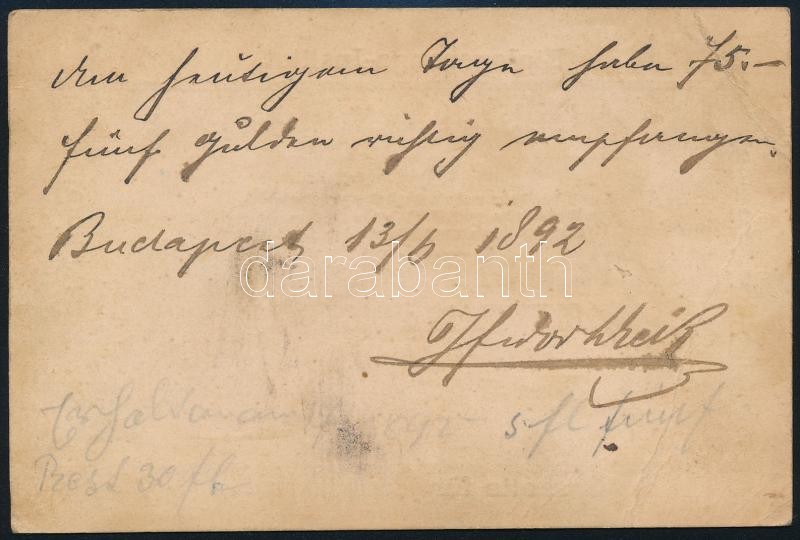 Am heutigen Tage habe f 5.–
fünf Gulden richtig empfangen.
Budapest 13/6 1892
darabanth
Erhalten am 5 fl fünf
Rest 30 fl